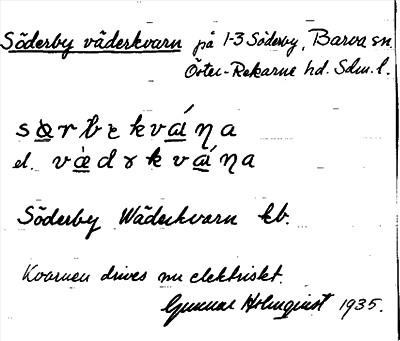 Söderby väderkvarn på 1-3 Söderby, Barva sn.
Öster-Rekarne hd. Sdm. l.
el.
Söderby Wäderkvarn kb.
Kvarnen drives nu elektriskt.
Gunnar Holmqvist 1935.